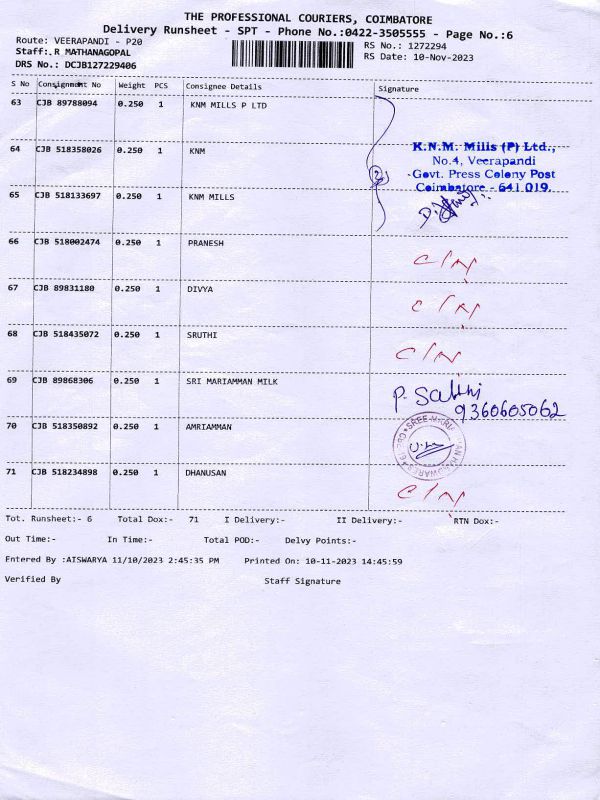 THE PROFESSIONAL COURIERS, COIMBATORE
Delivery Runsheet - SPT - Phone No.:0422-3505555 - Page No.:6
Route: VEERAPANDI - P20
RS No.: 1272294
Staff:.R MATHANAGOPAL
RS Date: 10-Nov-2023
DRS No.: DCJB127229406
S No Consignment No Weight PCS Consignee Details Signature
63 CJB 89788094 0.250 1 KNM MILLS P LTD
64 CJB 518358026 0.250 1 KNM
K.N.M. Mills (P) Ltd.,
No.4, Veerapandi
Govt. Press Colony Post
Coimbatore - 641 019.
65 CJB 518133697 0.250 1 KNM MILLS
66 CJB 518002474 0.250 1 PRANESH
67 CJB 89831180 0.250 1 DIVYA
68 CJB 518435072 0.250 1 SRUTHI
69 CJB 89868306 0.250 1 SRI MARIAMMAN MILK
P. Sakthi
9360605062
70 CJB 518350892 0.250 1 AMRIAMMAN
71 CJB 518234898 0.250 1 DHANUSAN
Tot. Runsheet:- 6 Total Dox:- 71 I Delivery:- II Delivery:- RTN Dox:-
Out Time:- In Time:- Total POD:- Delvy Points:-
Entered By :AISWARYA 11/10/2023 2:45:35 PM Printed On: 10-11-2023 14:45:59
Verified By Staff Signature